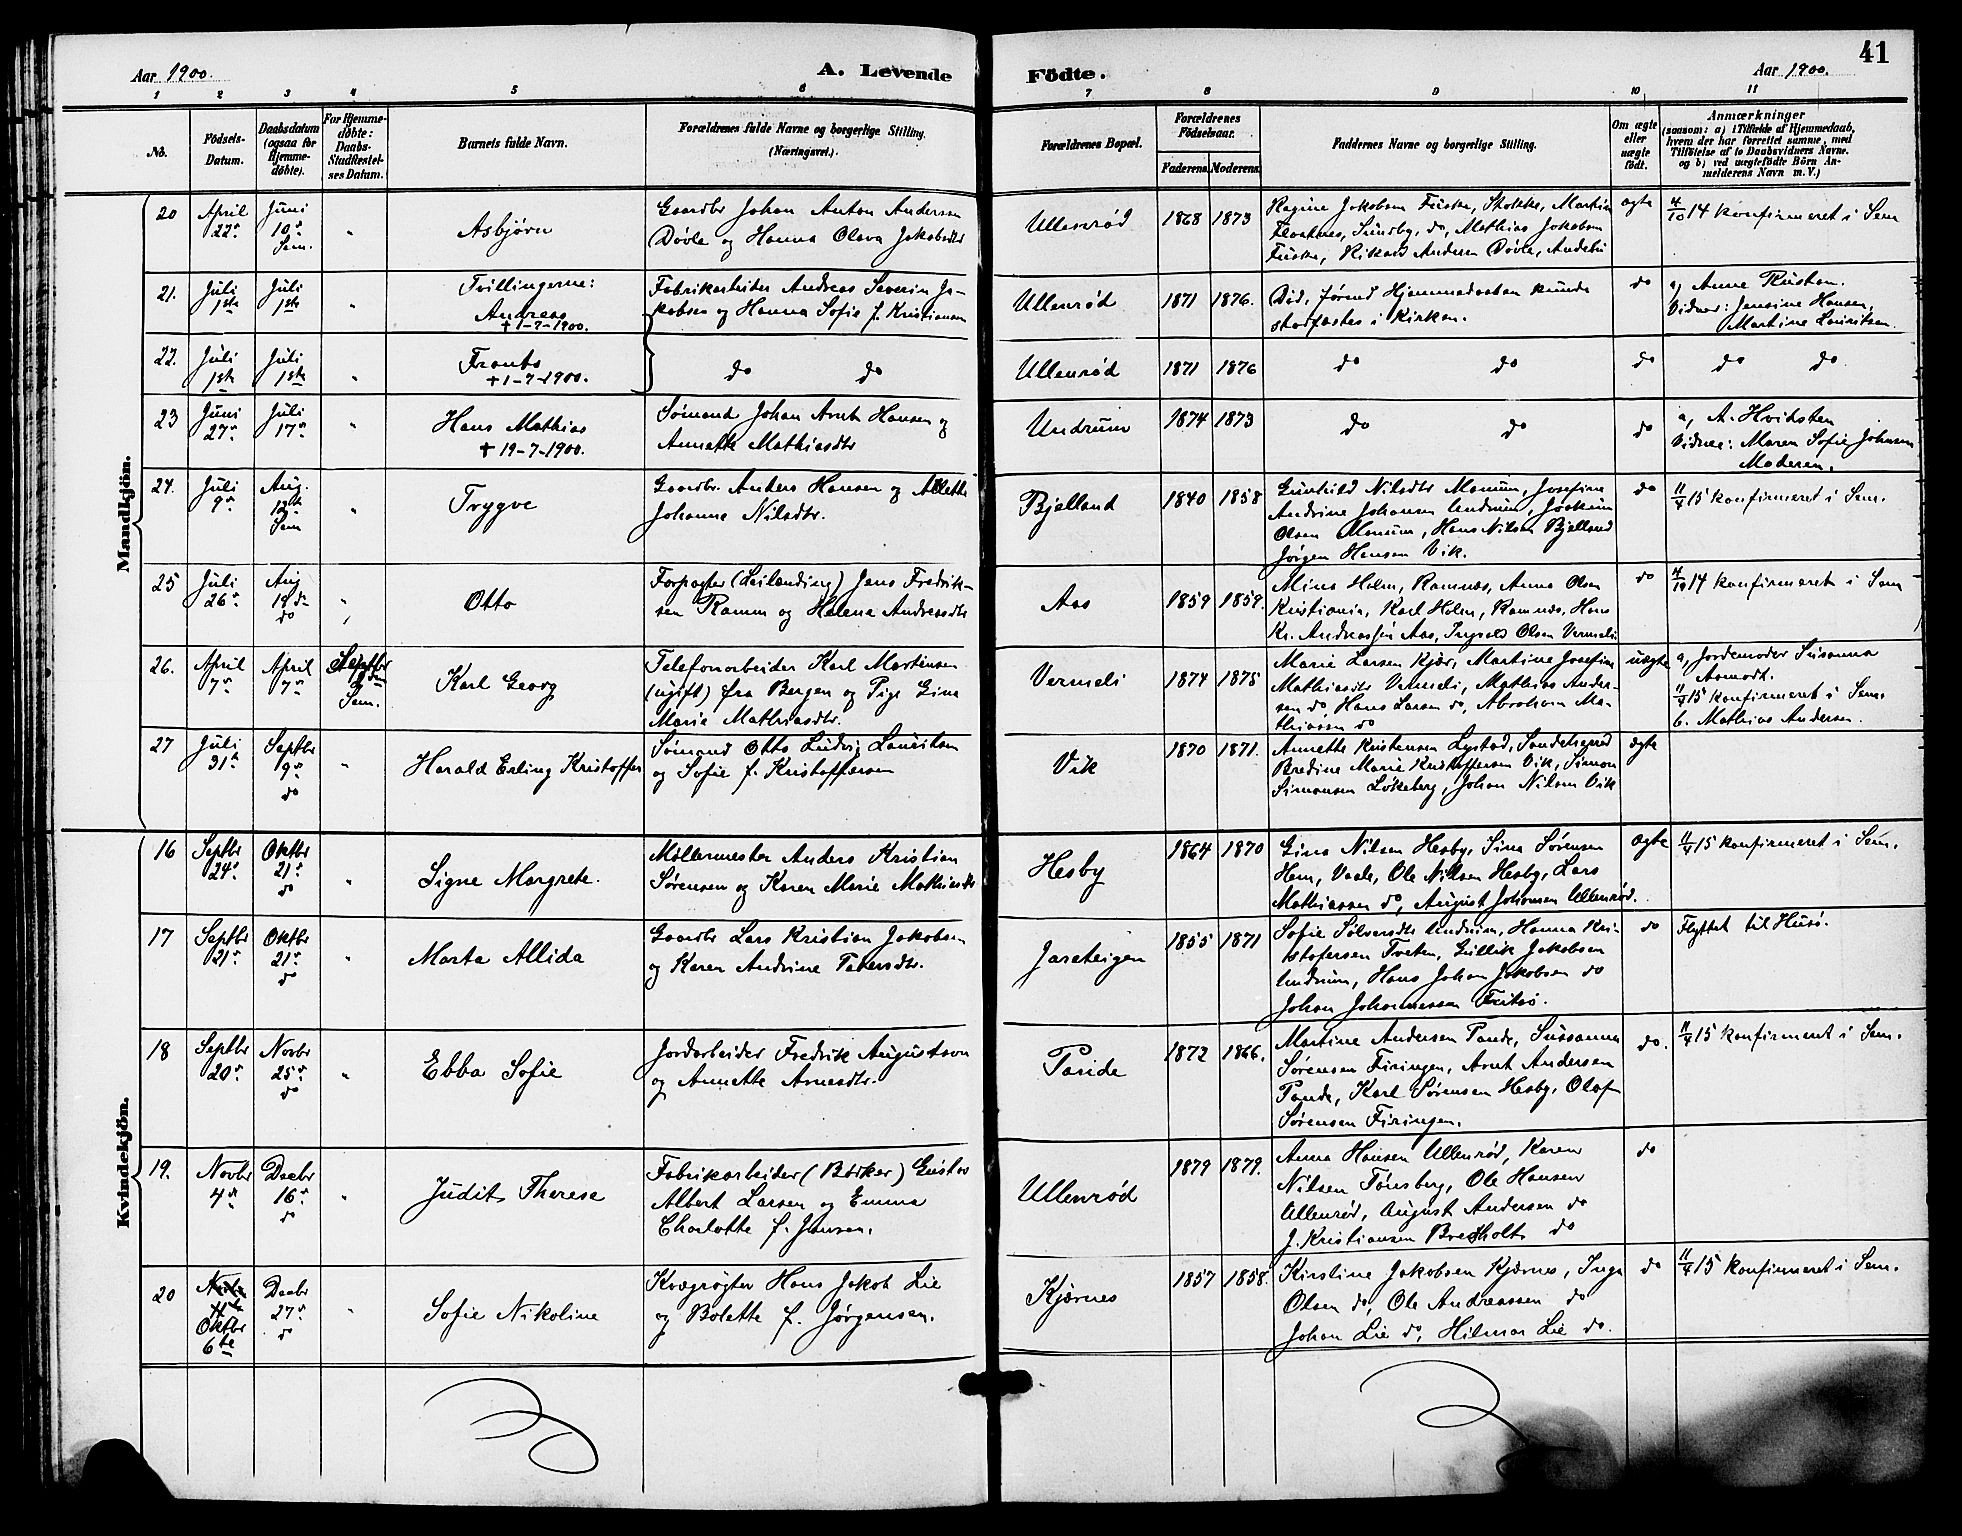 Aar 1900.
A. Levende
Födte.
Aar 1900.
41
1 2 3 4 5 6 7 8 9 10 11
No.
Födsels-
Datum.
Daabsdatum
(ogsaa for
Hjemme-
døbte).
For Hjemme-
døbte:
Daabs-
Stadfæstel-
ses Datum.
Barnets fulde Navn.
Forældrenes fulde Navne og borgerlige Stilling.
(Næringsvei.)
Forældrenes Bopæl.
Forældrenes
Födselsaar.
Faderens. Moderens.
Faddernes Navne og borgerlige Stilling.
Om ægte
eller
uægte
født.
Anmærkninger
(saasom: a) i Tilfælde af Hjemmedaab,
hvem der har forrettet samme, med
Tilföielse af to Daabsvidners Navne,
og b) ved uægtefödte Börn An-
melderens Navn m. V.)
Mandkjön.
20
April
22
Juni
10
Sem.
Asbjørn
Gaardbr Johan Anton Andersen
Døvle og Hanna Olava Jakobsdtr
Ullenrød
1868 1873
Ragine Jakobsen Fuske, Stokke, Martin
Sundby, do, Mathias Jakobsen
Fuske, Rikard Andersen Døvle, Andebu
ægte
4/10 14 konfirmeret i Sem
21.
Juli
1ste
Juli
1ste
Tvillingerne:
Andreas
+ 1-7-1900.
Fabrikarbeider Andreas Severin Ja-
kobsen og Hanna Sofie f. Kristiansen
Ullenrød
1871 1876.
Død, førend Hjemmedaaben kunde
stadfæstes i Kirken.
do
a, Anne Rustan.
Vidner: Jensine Hansen,
Martine Lauritsen.
22.
Juli
1ste
Juli
1ste
Frants
+ 1-7-1900.
do do
Ullenrød
1871 1876
do do
do
do do
23
Juni
27
Juli
17
Hans Mathias
+ 19-7-1900.
Sømand Johan Arnt Hansen og
Annette Mathiasdtr
Undrum
1874 1873
do do
do
a, A. Hvitsten
Vidner: Maren Sofie Johnsen
Moderen.
24.
Juli
9
Aug.
12te
Sem
Trygve
Gaardbr. Anders Hansen og Allette
Johanne Nilsdtr.
Bjelland
1840 1858
Gunhild Nilsdtr Manum, Josefine
Andrine Johansen Undrum, Joakim
Olsen Manum, Hans Nilsen Bjelland
Jørgen Hansen Vik.
do
11/4 15 konfirmeret i Sem.
25
Juli
26
Aug
19de
do
Otto
Forpagter (Leilænding) Jens Fredrik-
sen Ramm og Helena Andreasdtr
Aas
1859 1859.
Mina Holm, Ramnæs, Anna Olsen
Kristiania, Karl Holm, Ramnæs, Hans
Kr. Andreassen Aas, Ingvald Olsen Vermeli
do
4/10 14 konfirmeret i Sem
26.
April
7
April
7
Septbr
Sem.
Karl Georg
Telefonarbeider Karl Martinsen
(ugift) fra Bergen og Pige Gina
Marie Mathiasdtr.
Vermeli
1874 1875
Marie Larsen Kjær, Martine Josefine
Mathiasdtr Vermeli, Mathias Ander-
sen do Hans Larsen do, Abraham Ma-
thiasen do
uægte
a, Jordemoder Susanna
Aamodt.
11/4 15 konfirmeret i Sem.
b. Mathias Andersen.
27
Juli
31
Septbr
9
do
Harald Erling Kristoffer
Sømand Otto Ludvig Lauritsen
og Sofie f. Kristoffersen
Vik
1870 1871.
Annette Kristensen Lystad, Sandeherred
Bredine Marie Kristoffersen Vik, Simon
Simonsen Løkeberg, Johan Nilsen Vik
ægte
Kvindekjön.
16
Septbr
24
Oktbr
21
do
Signe Margrete.
Møllermester Anders Kristian
Sørensen og Karen Marie Mathiasdtr
Hesby
1864 1870
Gina Nilsen Hesby, Sina Sørensen
Hem, Vaale, Ole Nilsen Hesby, Lars
Mathiassen do, August Johansen Ullenrød.
ægte
11/4 15 konfirmeret i Sem.
17
Septbr
21
Oktbr
21
do
Marta Allida
Gaardbr Lars Kristian Jakobsen
og Karen Andrine Petersdtr.
Jarateigen
1855 1871
Sofie Sølversdtr Undrum, Hanna Kri-
stofersen Treten, Gullik Jakobsen
Undrum, Hans Johan Jakobsen do
Johan Johannessen Fritsø.
do
Flyttet til Husø.
18
Septbr
20
Novbr
25
do
Ebba Sofie
Jordarbeider Fredrik Augustson
og Annette Arnesdtr.
Paride
1872 1866.
Martine Andersen Pande, Sussanna
Sørensen Firingen, Arnt Andersen
Pande, Karl Sørensen Hesby, Olaf
Sørensen Firingen.
do.
11/4 15 konfirmeret i Sem.
19.
Novbr
4
Decbr
16
do
Judit Therese
Fabrikarbeider (Bødker) Gustav
Albert Larsen og Emma
Charlotte f. Jensen.
Ullenrød
1879 1879.
Anna Hansen Ullenrød, Karen
Nilsen Tønsberg, Ole Hansen
Ullenrød, August Andersen do
J. Kristiansen Brekholt do
do
20
Oktbr
6te
Decbr
27
do
Sofie Nikoline
Kvægrøgter Hans Jakob Lie
og Bolette f. Jørgensen.
Kjærnes
1857 1858.
Kirstine Jakobsen Kjærnes, Inga
Olsen do, Ole Andreassen do
Johan Lie do, Hilmar Lie do.
do
11/4 15 konfirmeret i Sem.